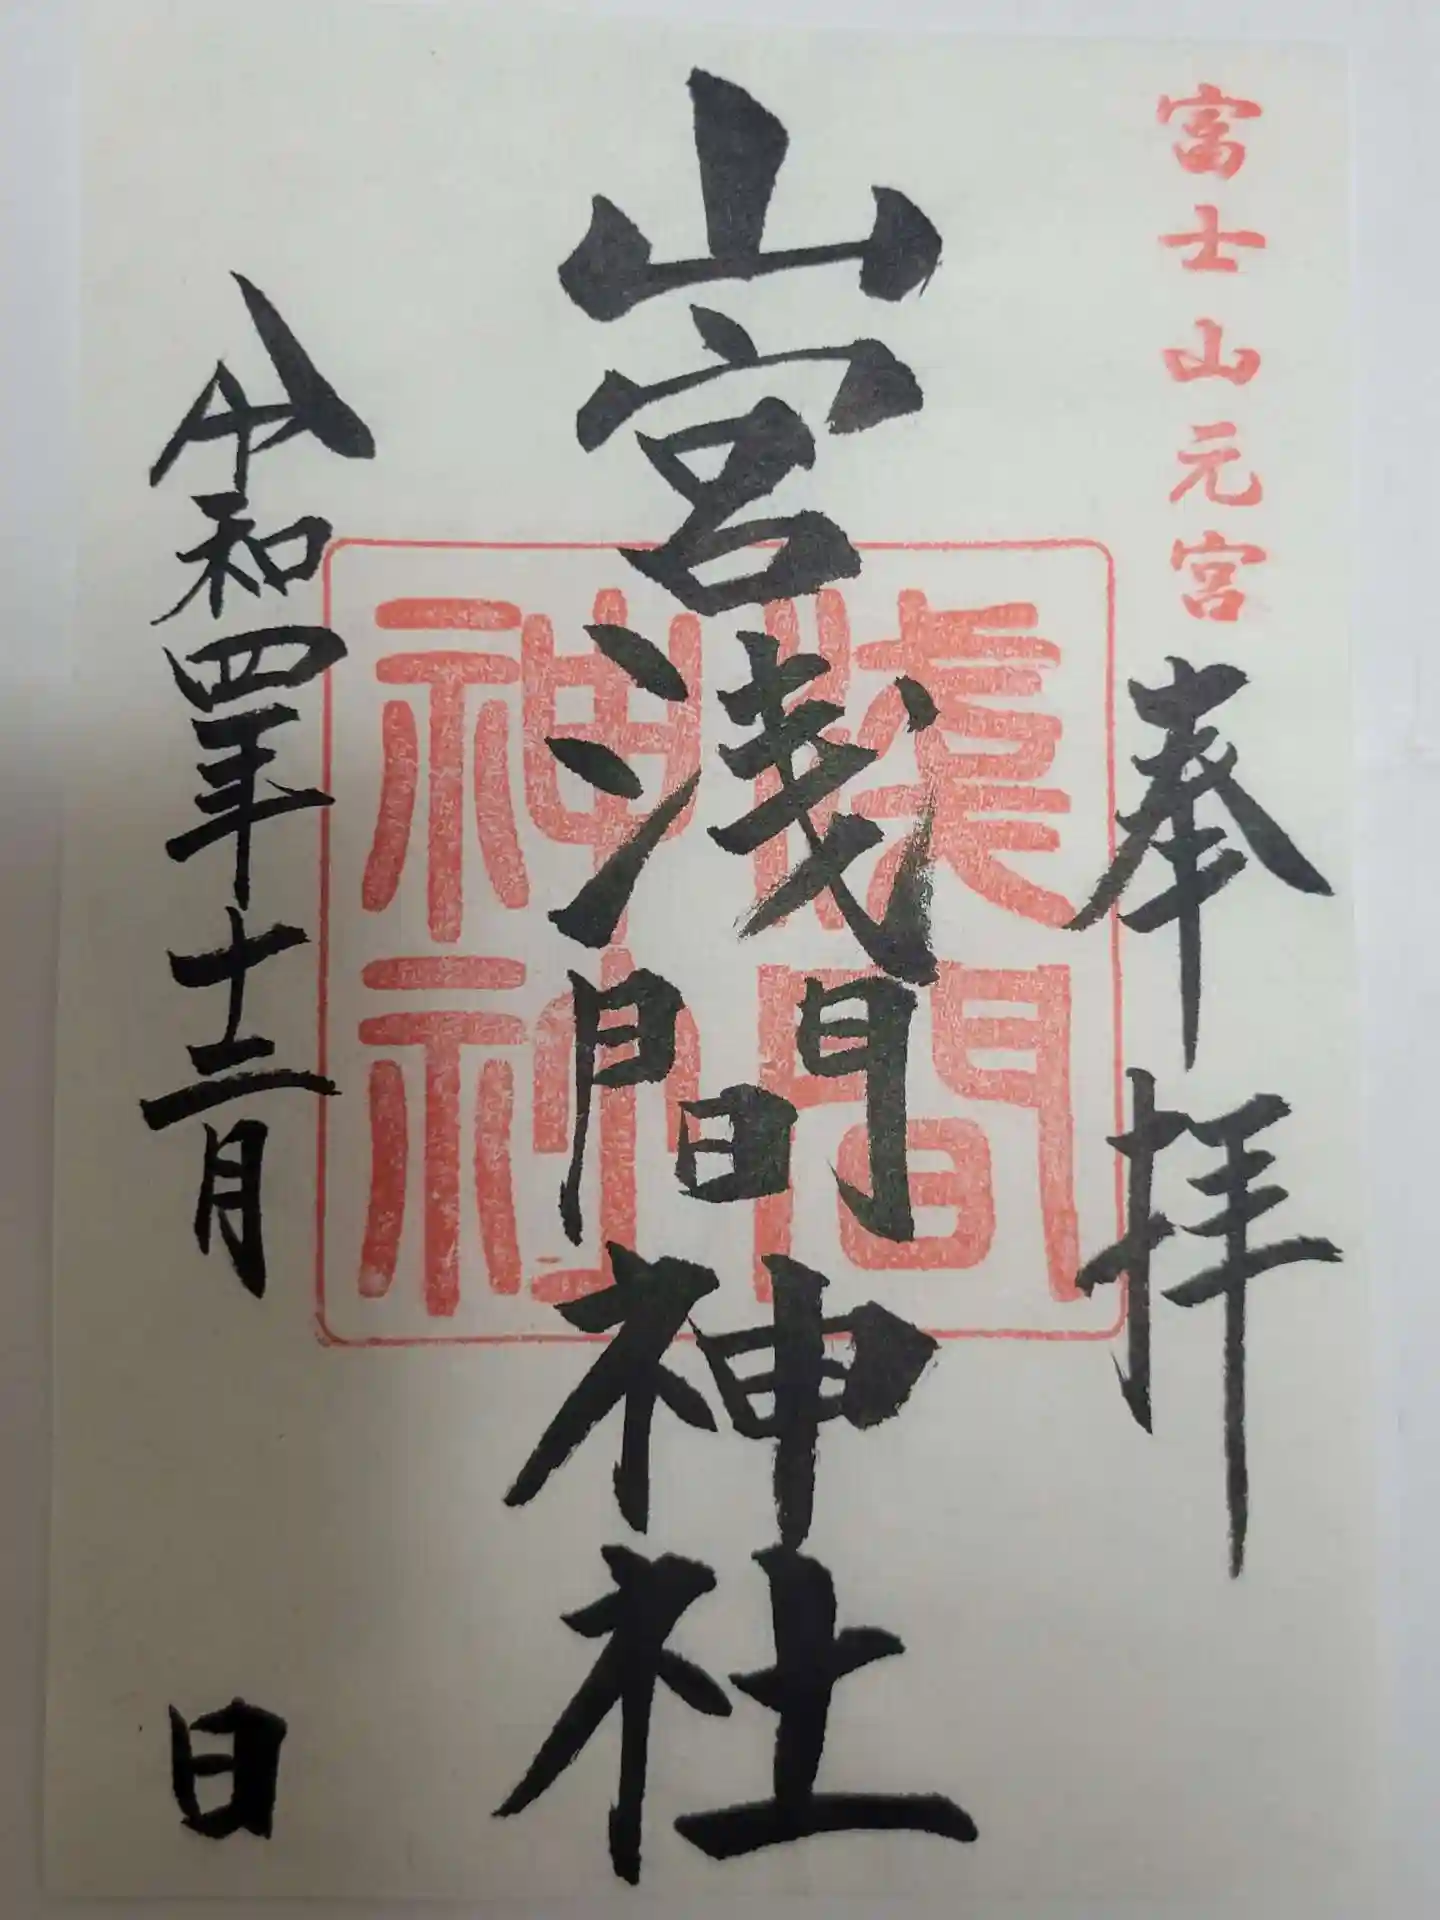 富士山元宮
奉拝
山宮浅間神社
淺間
神社
令和四年十二月 日